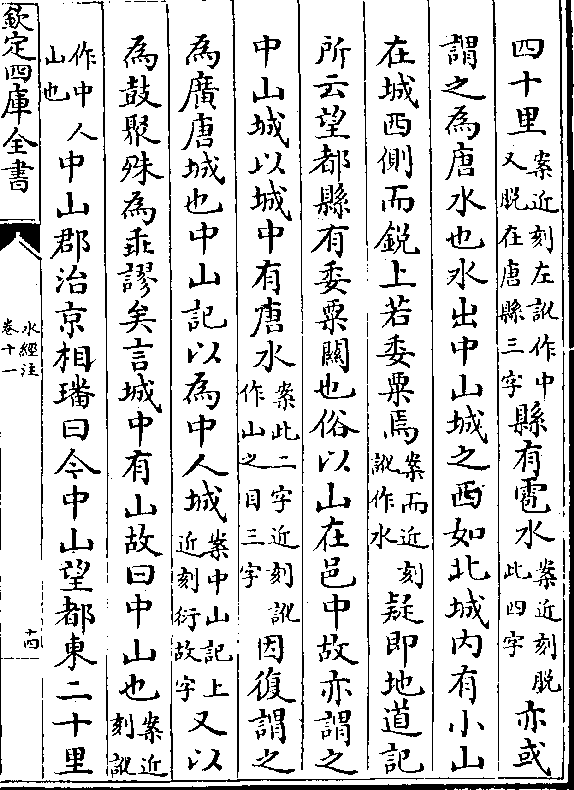 四十里案近刻左訛作中又脫在唐縣三字縣有雹水案近刻脫此四字亦或
謂之為唐水也水出中山城之西如北城内有小山
在城西側而銳上若委粟焉案而近刻訛作水疑即地道記
所云望都縣有委粟關也俗以山在邑中故亦謂之
中山城以城中有唐水案此二字近刻訛作山之目三字因復謂之
為廣唐城也中山記以為中人城案中山記上近刻衍故字又以
為鼓聚殊為乖謬矣言城中有山故曰中山也案近刻訛
作中人山也中山郡治京相璠曰今中山望都東二十里
欽定四庫全書
水經注
卷十一
十四